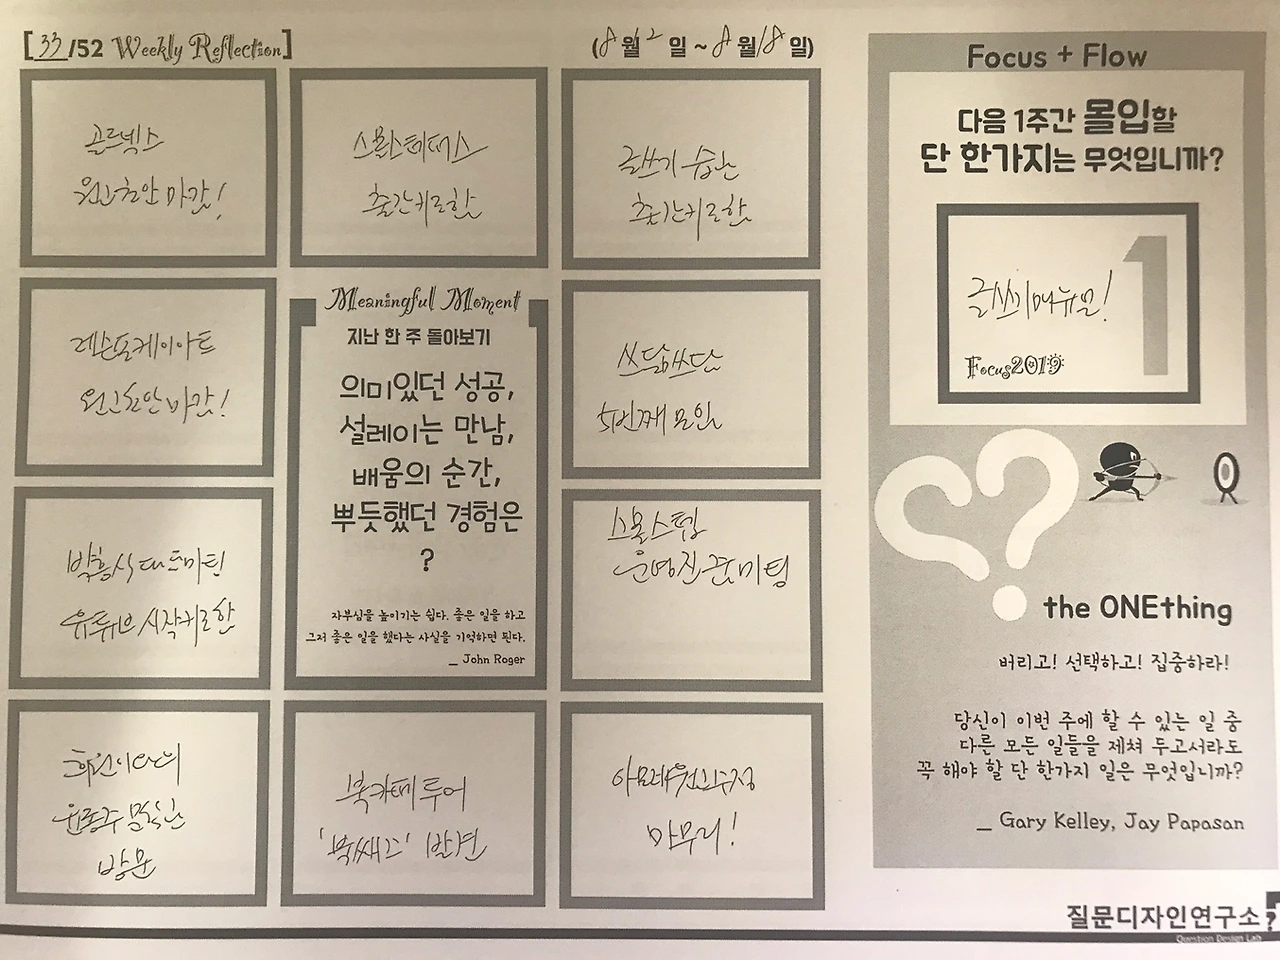 [33/52 Weekly Reflection]
(8월 2일 ~ 8월 18일)
골드넥스
원고초안 마감!
스몰스테퍼스
출간계약
글쓰기 습관
레슨포케이아트
원고초안 마감!
Meaningful Moment
지난 한 주 돌아보기
의미있던 성공,
설레이는 만남,
배움의 순간,
뿌듯했던 경험은
?
자부심을 높이기는 쉽다. 좋은 일을 하고
그저 좋은 일을 했다는 사실을 기억하면 된다.
_ John Roger
쓰담쓰담
5번째 모임
박홍식
유튜브 시작
스몰스텝
운영진 미팅
윤동주 문학관
방문
북카페 투어
'북쌔즈' 발견
원고수정
마무리!
Focus + Flow
다음 1주간 몰입할
단 한가지는 무엇입니까?
글쓰기 매뉴얼!
1
Focus2019
the ONEthing
버리고! 선택하고! 집중하라!
당신이 이번 주에 할 수 있는 일 중
다른 모든 일들을 제쳐 두고서라도
꼭 해야 할 단 한가지 일은 무엇입니까?
_ Gary Kelley, Jay Papasan
질문디자인연구소?
Question Design Lab